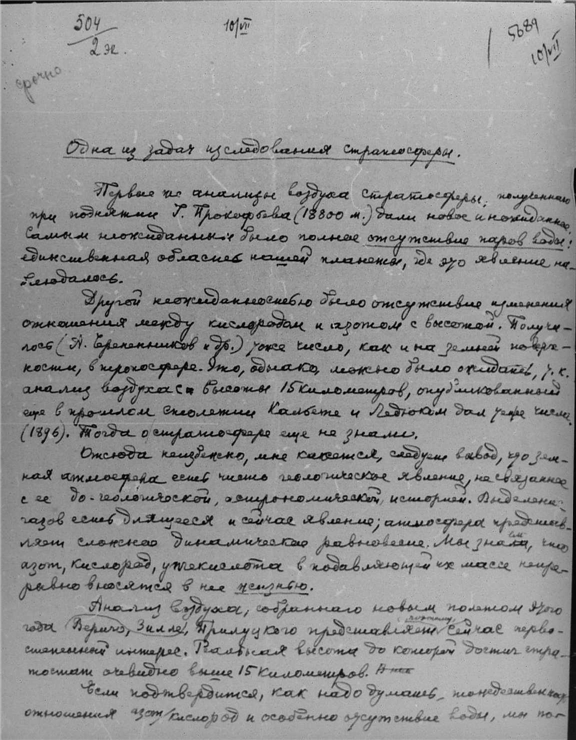 504
2 эк.
10/VII
5689
10/VII
срочно
Одна из задач изследования стратосферы.
Первые же анализы воздуха стратосферы, полученного
при поднятии Г. Прокофьева (18800 м.) дали новое и неожиданное.
Самым неожиданным было полное отсутствие паров воды:
единственная область нашей планеты, где это явление на-
блюдалось.
Другой неожиданностью было отсутствие изменения
отношения между кислородом и азотом с высотой. Получи-
лось (А. Черепенников и др.) тоже число, как и на земной поверх-
ности, в тропосфере. Это, однако, можно было ожидать, т.к.
анализ воздуха с высоты 15 километров, опубликованный
еще в прошлом столетии Кальете и дал те же числа
(1896). Тогда о стратосфере еще не знали.
Отсюда неизбежно, мне кажется, следует вывод, что зем-
ная атмосфера есть чисто геологическое явление, не связанное
с ее до-геологической, астрономической, историей. Выделение
газов есть длящееся и сейчас явление; атмосфера представ-
ляет сложное динамическое равновесие. Мы знаем, что
азот, кислород, углекислота в подавляющей их массе непре-
рывно вносятся в нее жизнью.
Анализ воздуха, собранного новым полетом этого
года Вериго, Зилле, Прилуцкого представляет поэтому сейчас перво-
степенный интерес. Реальная высота до которой достиг стра-
тостат очевидно выше 15 километров.
Если подтвердится, как надо думать, тождественность
отношения азот/кислород и особенно отсутствие воды, мы